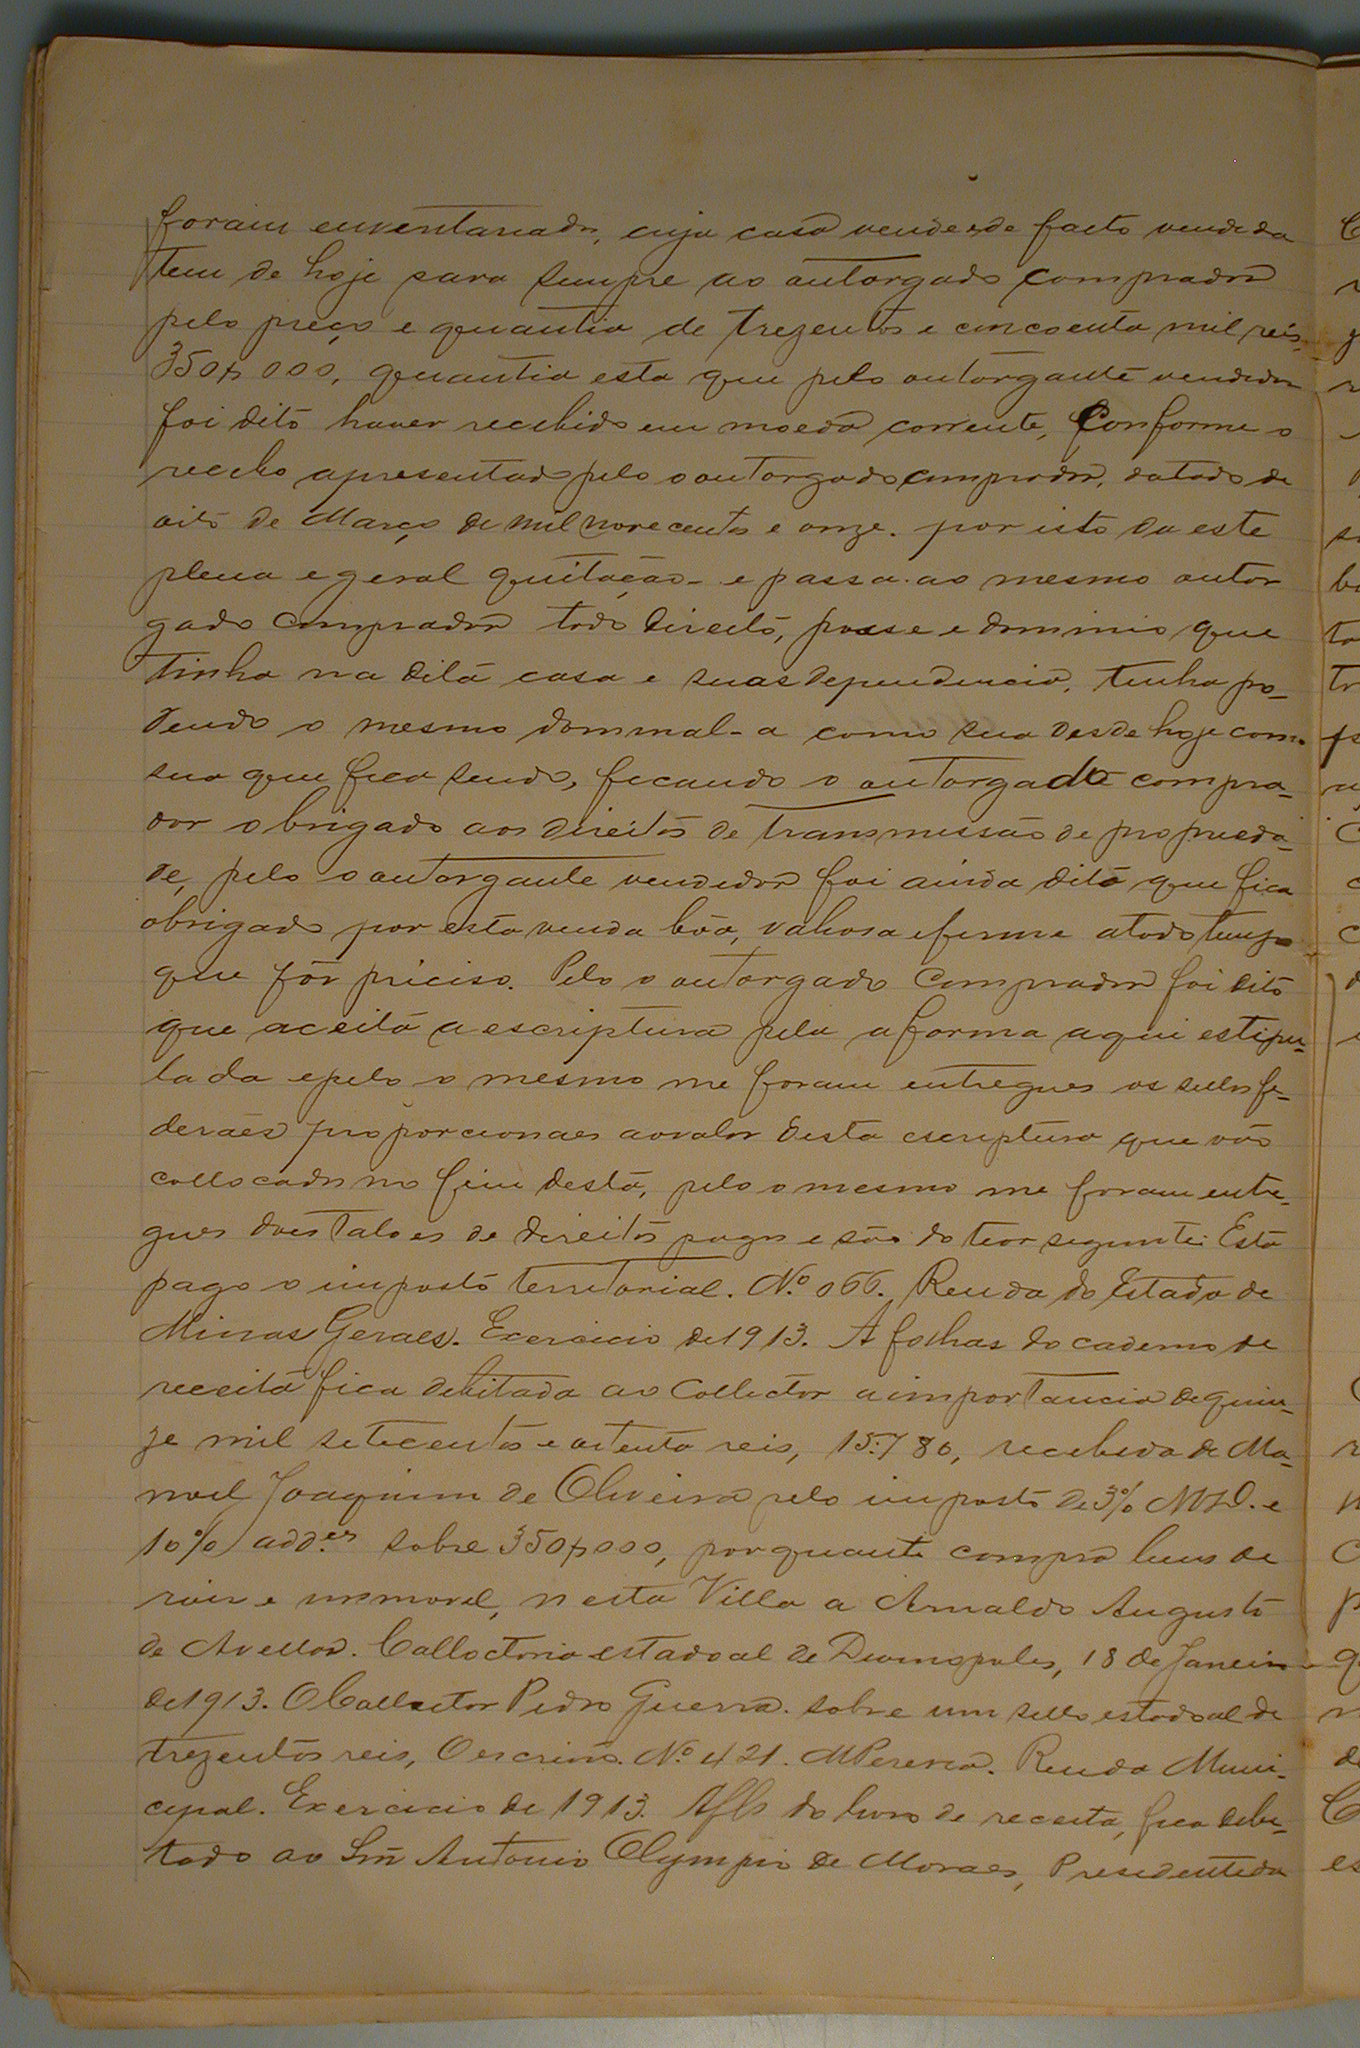 foram enventariado, cuja casa vende e de facto vendida
tem de hoje para sempre ao outorgado comprador
pelo preço e quantia de trezentos e concoenta mil reis
350$000, quantia esta que pelo outorgante vendedor
foi dito haver recebido em moeda corrente, Conforme o
recebo apresentado pelo o outorgado comprador, datado de
oito de Março de mil novecentos e onze. por isto da este
plena e geral quitação - e passa ao mesmo outor
gado comprador todo direito, posse e dominio que
tinha na dita casa e suas dependencia, tenha po-
dendo o mesmo dominal-a como sua desde hoje como
sua que fica sendo, ficando o outorgado compra-
dor obrigado aos direitos de transmissão de proprieda-
de, pelo o outorgante vendedor foi ainda dito que fica
obrigado por esta venda bôa, valiosa e firme a todo tempo
que fôr priciso. Pelo o outorgado Comprador foi dito
que aceita a escriptura pela a forma aqui estipu-
lada e pelo o mesmo me foram entregues os sellos fe-
deraes proporcionaes ao valor desta escriptura que vão
collocados no fim desta, pelo o mesmo me foram entre-
gues dois talões de direitos pagos e são do teor seguinte: Está
pago o imposto territorial. Nº 066. Renda do Estado de
Minas Geraes. Exercicio de 1913. A folhas do caderno de
receita fica debitada ao Collector a importancia de quin-
ze mil setecentos e oitenta reis, 15:780, recebida de Ma-
noel Joaquim de Oliveira pelo imposto de 3% e
10% add.es sobre 350$000, porquanto compra bens de
raiz e immovel, nesta Villa a Arnaldo Augusto
de Avellar. Collectoria estadoal de Divinopoles, 18 de Janeiro
de 1913. O Collector Pedro Guerra. sobre um sello estadoal de
trezentos reis, O escrivão. Nº 421. MPereira. Renda Muni-
cepal. Exercicio de 1913. Afls do livro de receita, fica debi-
tado ao Snr Antonio Olympio de Moraes, Presidente da